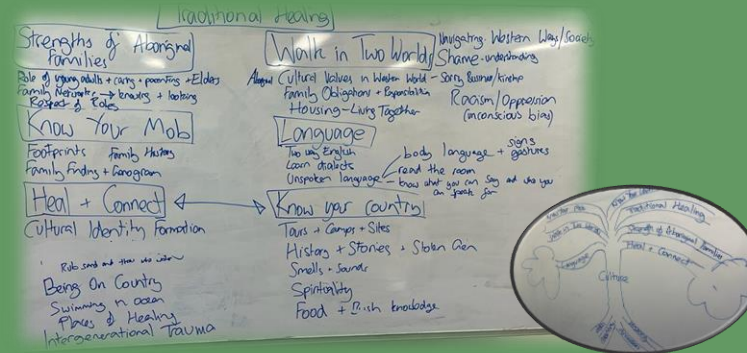 Traditional Healing
Strengths of Aboriginal
Families
Role of young adults + caring + parenting + Elders
Family Networks → knowing + looking
Respect of Roles
Know Your Mob
Footprints Family History
Family Finding + Genogram
Heal + Connect
Cultural Identity Formation
Rub sand and throw
Being On Country
Swimming in ocean
Places of Healing
Intergenerational Trauma
Walk in Two Worlds
Navigating Western Ways/Society
Shame - understanding
Cultural Values in Western World - Sorry Business/Kinship
Family Obligations + Responsibilities
Housing - Living Together
Racism/Oppression
(unconscious bias)
Language
Two way English
Learn dialects
Unspoken language
body language + signs
gestures
read the room
know what you can say and who you
can speak for
Know your Country
Tours + Camps + Sites
History + Stories + Stolen Gen
Smells + Sounds
Spirituality
Food + Bush knowledge
Know Your Mob
Traditional Healing
Walk in Two Worlds
Strength of Aboriginal Families
Language
Heal + Connect
Culture